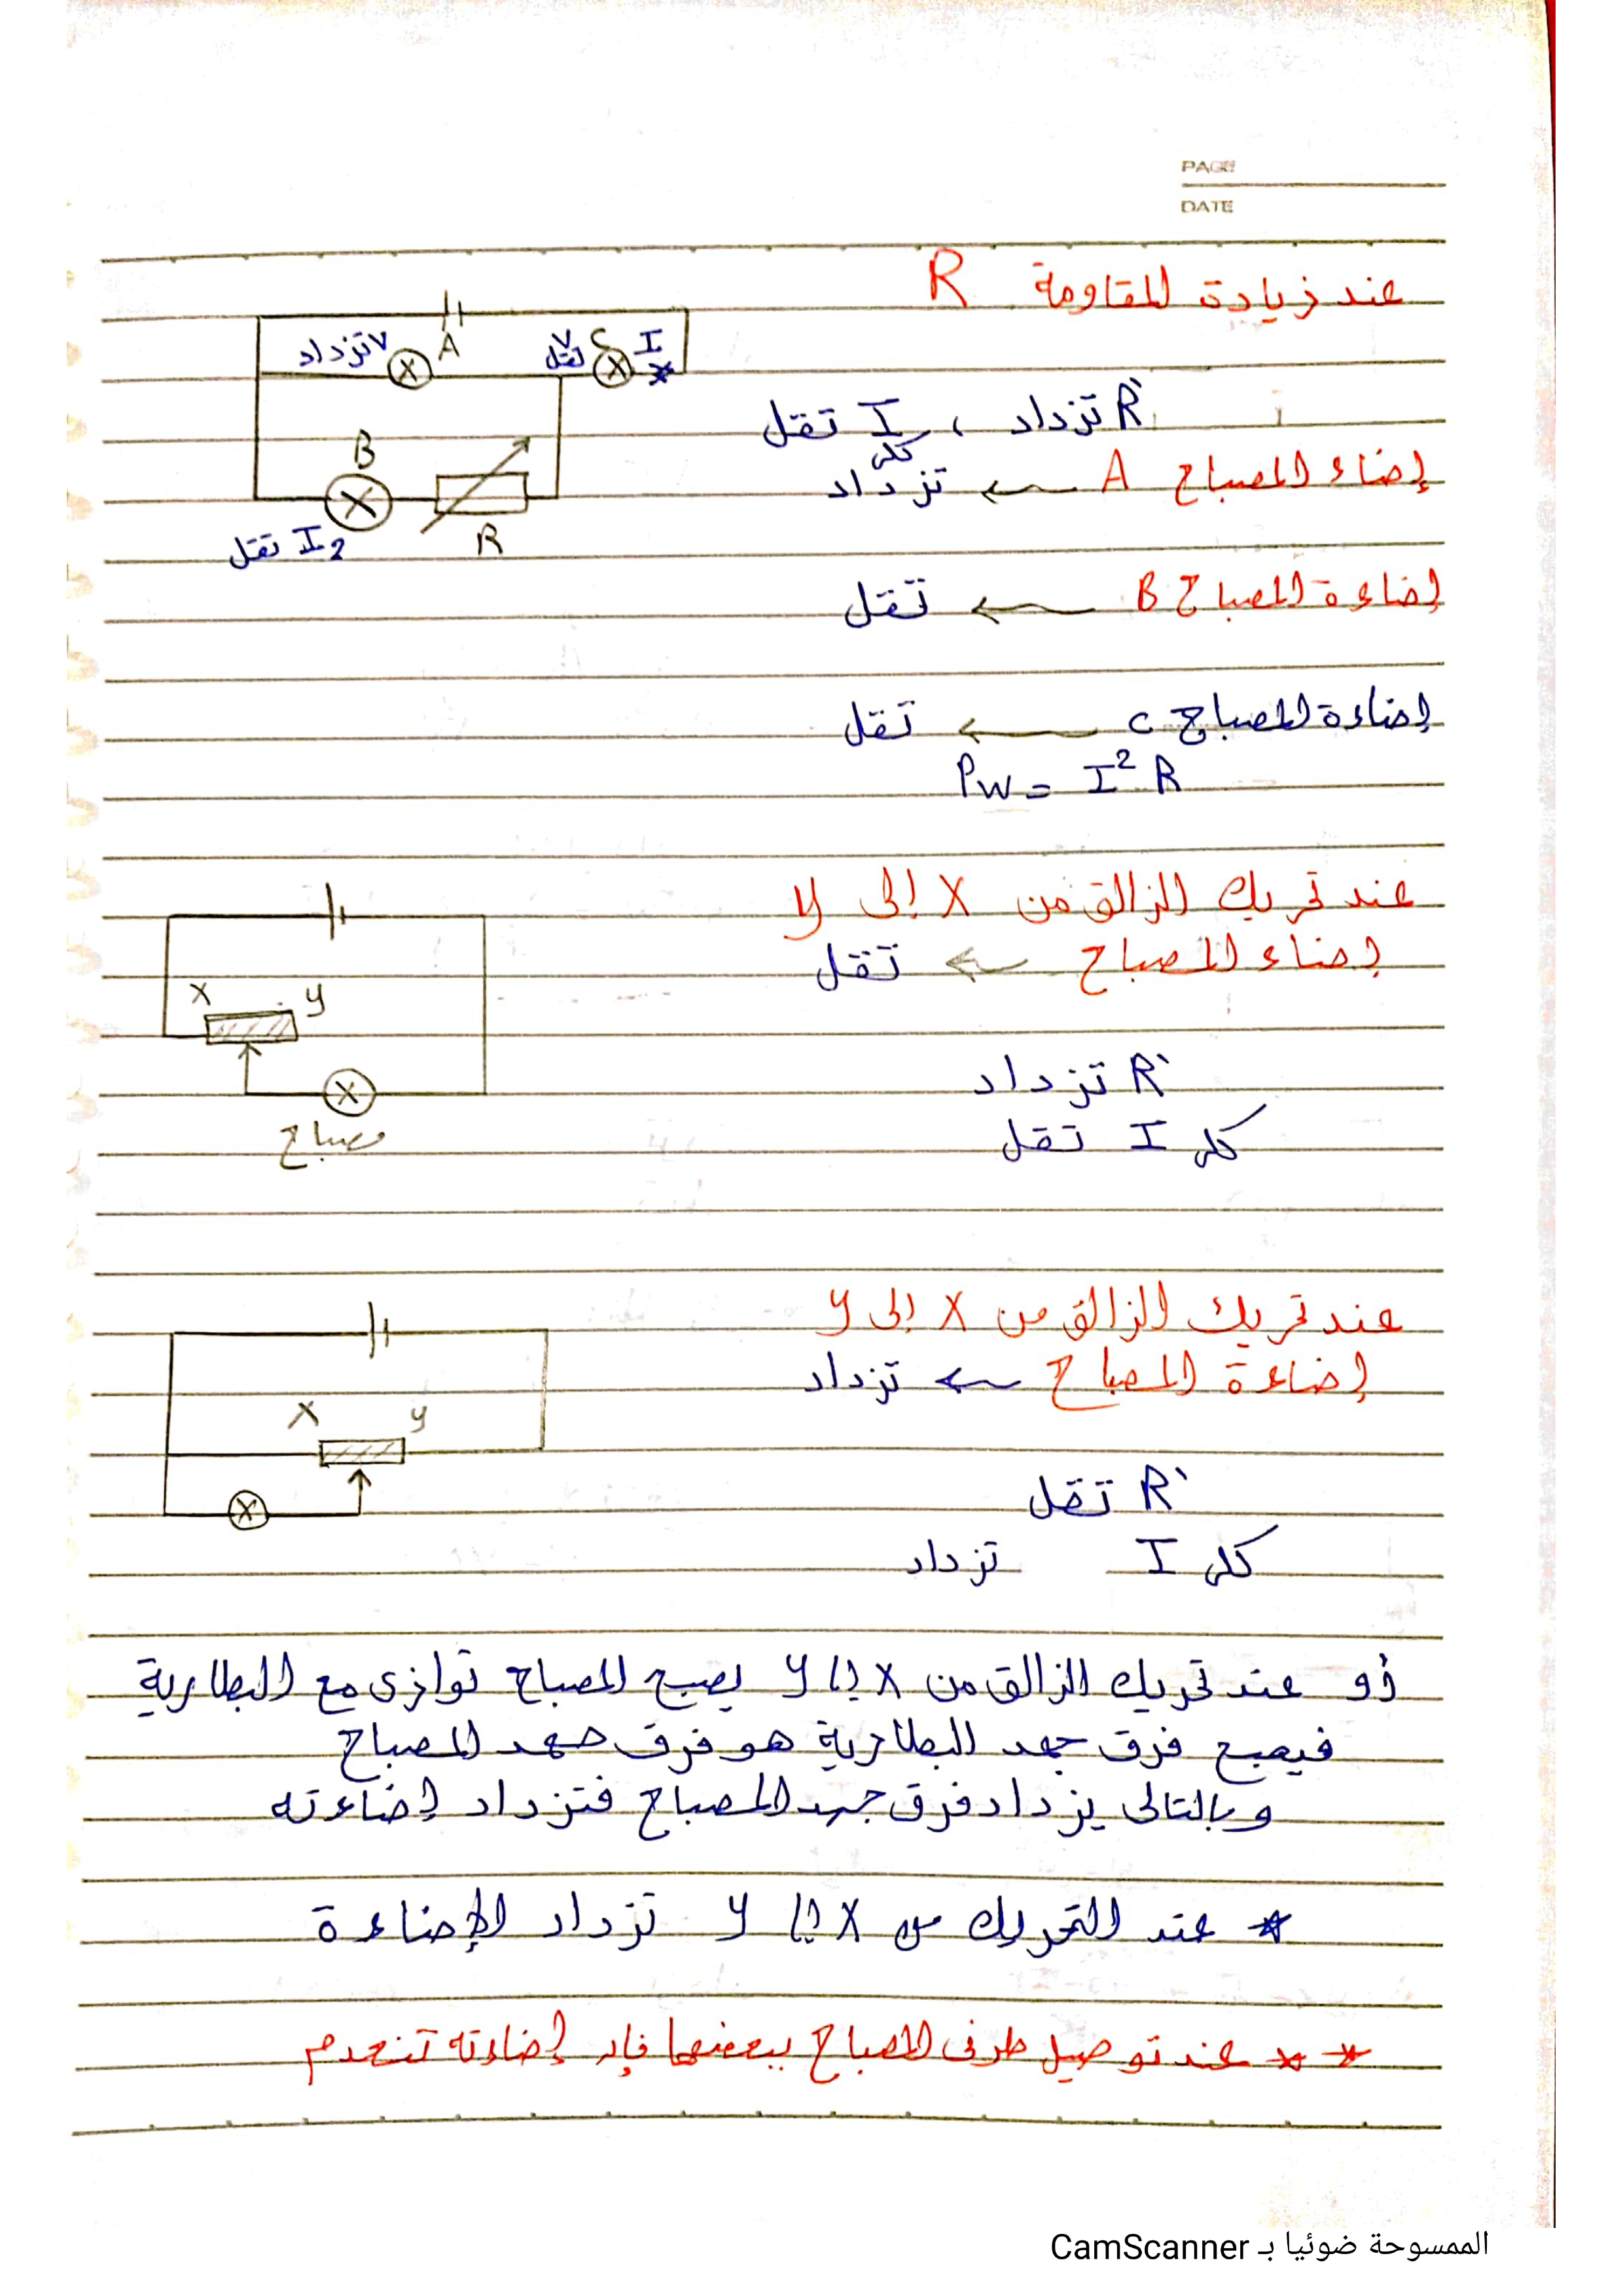 PAGE
DATE
عند زيادة المقاومة R
A
V تزداد
C
V تقل
I
R` تزداد ، I كلى تقل
إضاء المصباح A ← تزداد
B
R
I2 تقل
إضاءة المصباح B ← تقل
إضاءة المصباح C ← تقل
Pw = I² R
عند تحريك الزالق من X إلى y
إضاء المصباح ← تقل
X y
R` تزداد
مصباح
كلى I تقل
عند تحريك الزالق من X إلى y
إضاءة المصباح ← تزداد
X y
R` تقل
كلى I تزداد
أو عند تحريك الزالق من X إلى y يصبح المصباح توازى مع البطارية
فيصبح فرق جهد البطارية هو فرق جهد المصباح
وبالتالى يزداد فرق جهد المصباح فتزداد إضاءته
* عند التحريك من X إلى y تزداد الإضاءة
** عند توصيل طرفى المصباح ببعضها فإن إضاءته تنعدم
الممسوحة ضوئيا بـ CamScanner